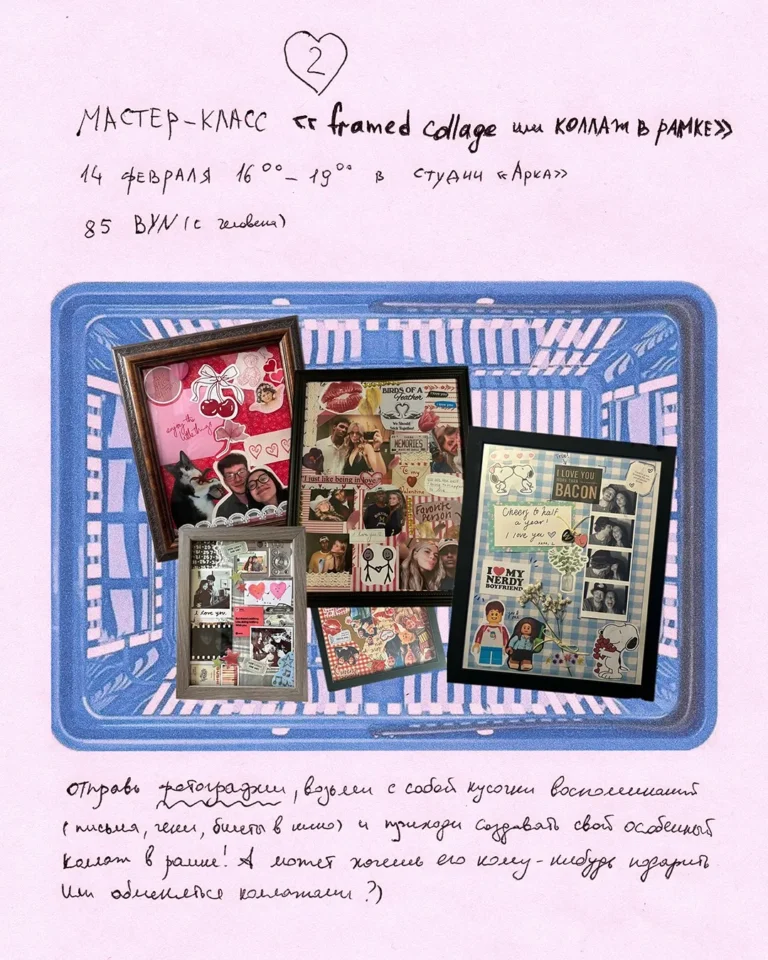 2
МАСТЕР-КЛАСС «framed collage или КОЛЛАЖ В РАМКЕ»
14 ФЕВРАЛЯ 16⁰⁰ – 19⁰⁰ в студии «Арка»
85 BYN (с человека)
enjoy the little things
BIRDS OF A
Feather
We Should
Stick Together
MEMORIES
I just like being in love
Favorite
Person
I love you
I LOVE YOU
MORE THAN
BACON
Cheers to half
a year!
I love you
I ♥ MY
NERDY
BOYFRIEND
отправь фотографии, возьми с собой кусочки воспоминаний
(письма, чеки, билеты в кино) и приходи создавать свой особенный
коллаж в рамке! А может хочешь его кому-нибудь подарить
или обменяться коллажами?)